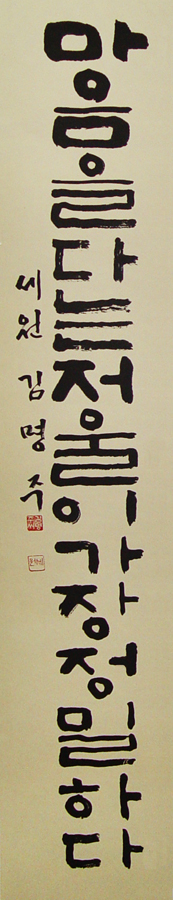 마음을다는저울이가장정밀하다
세원 김명주